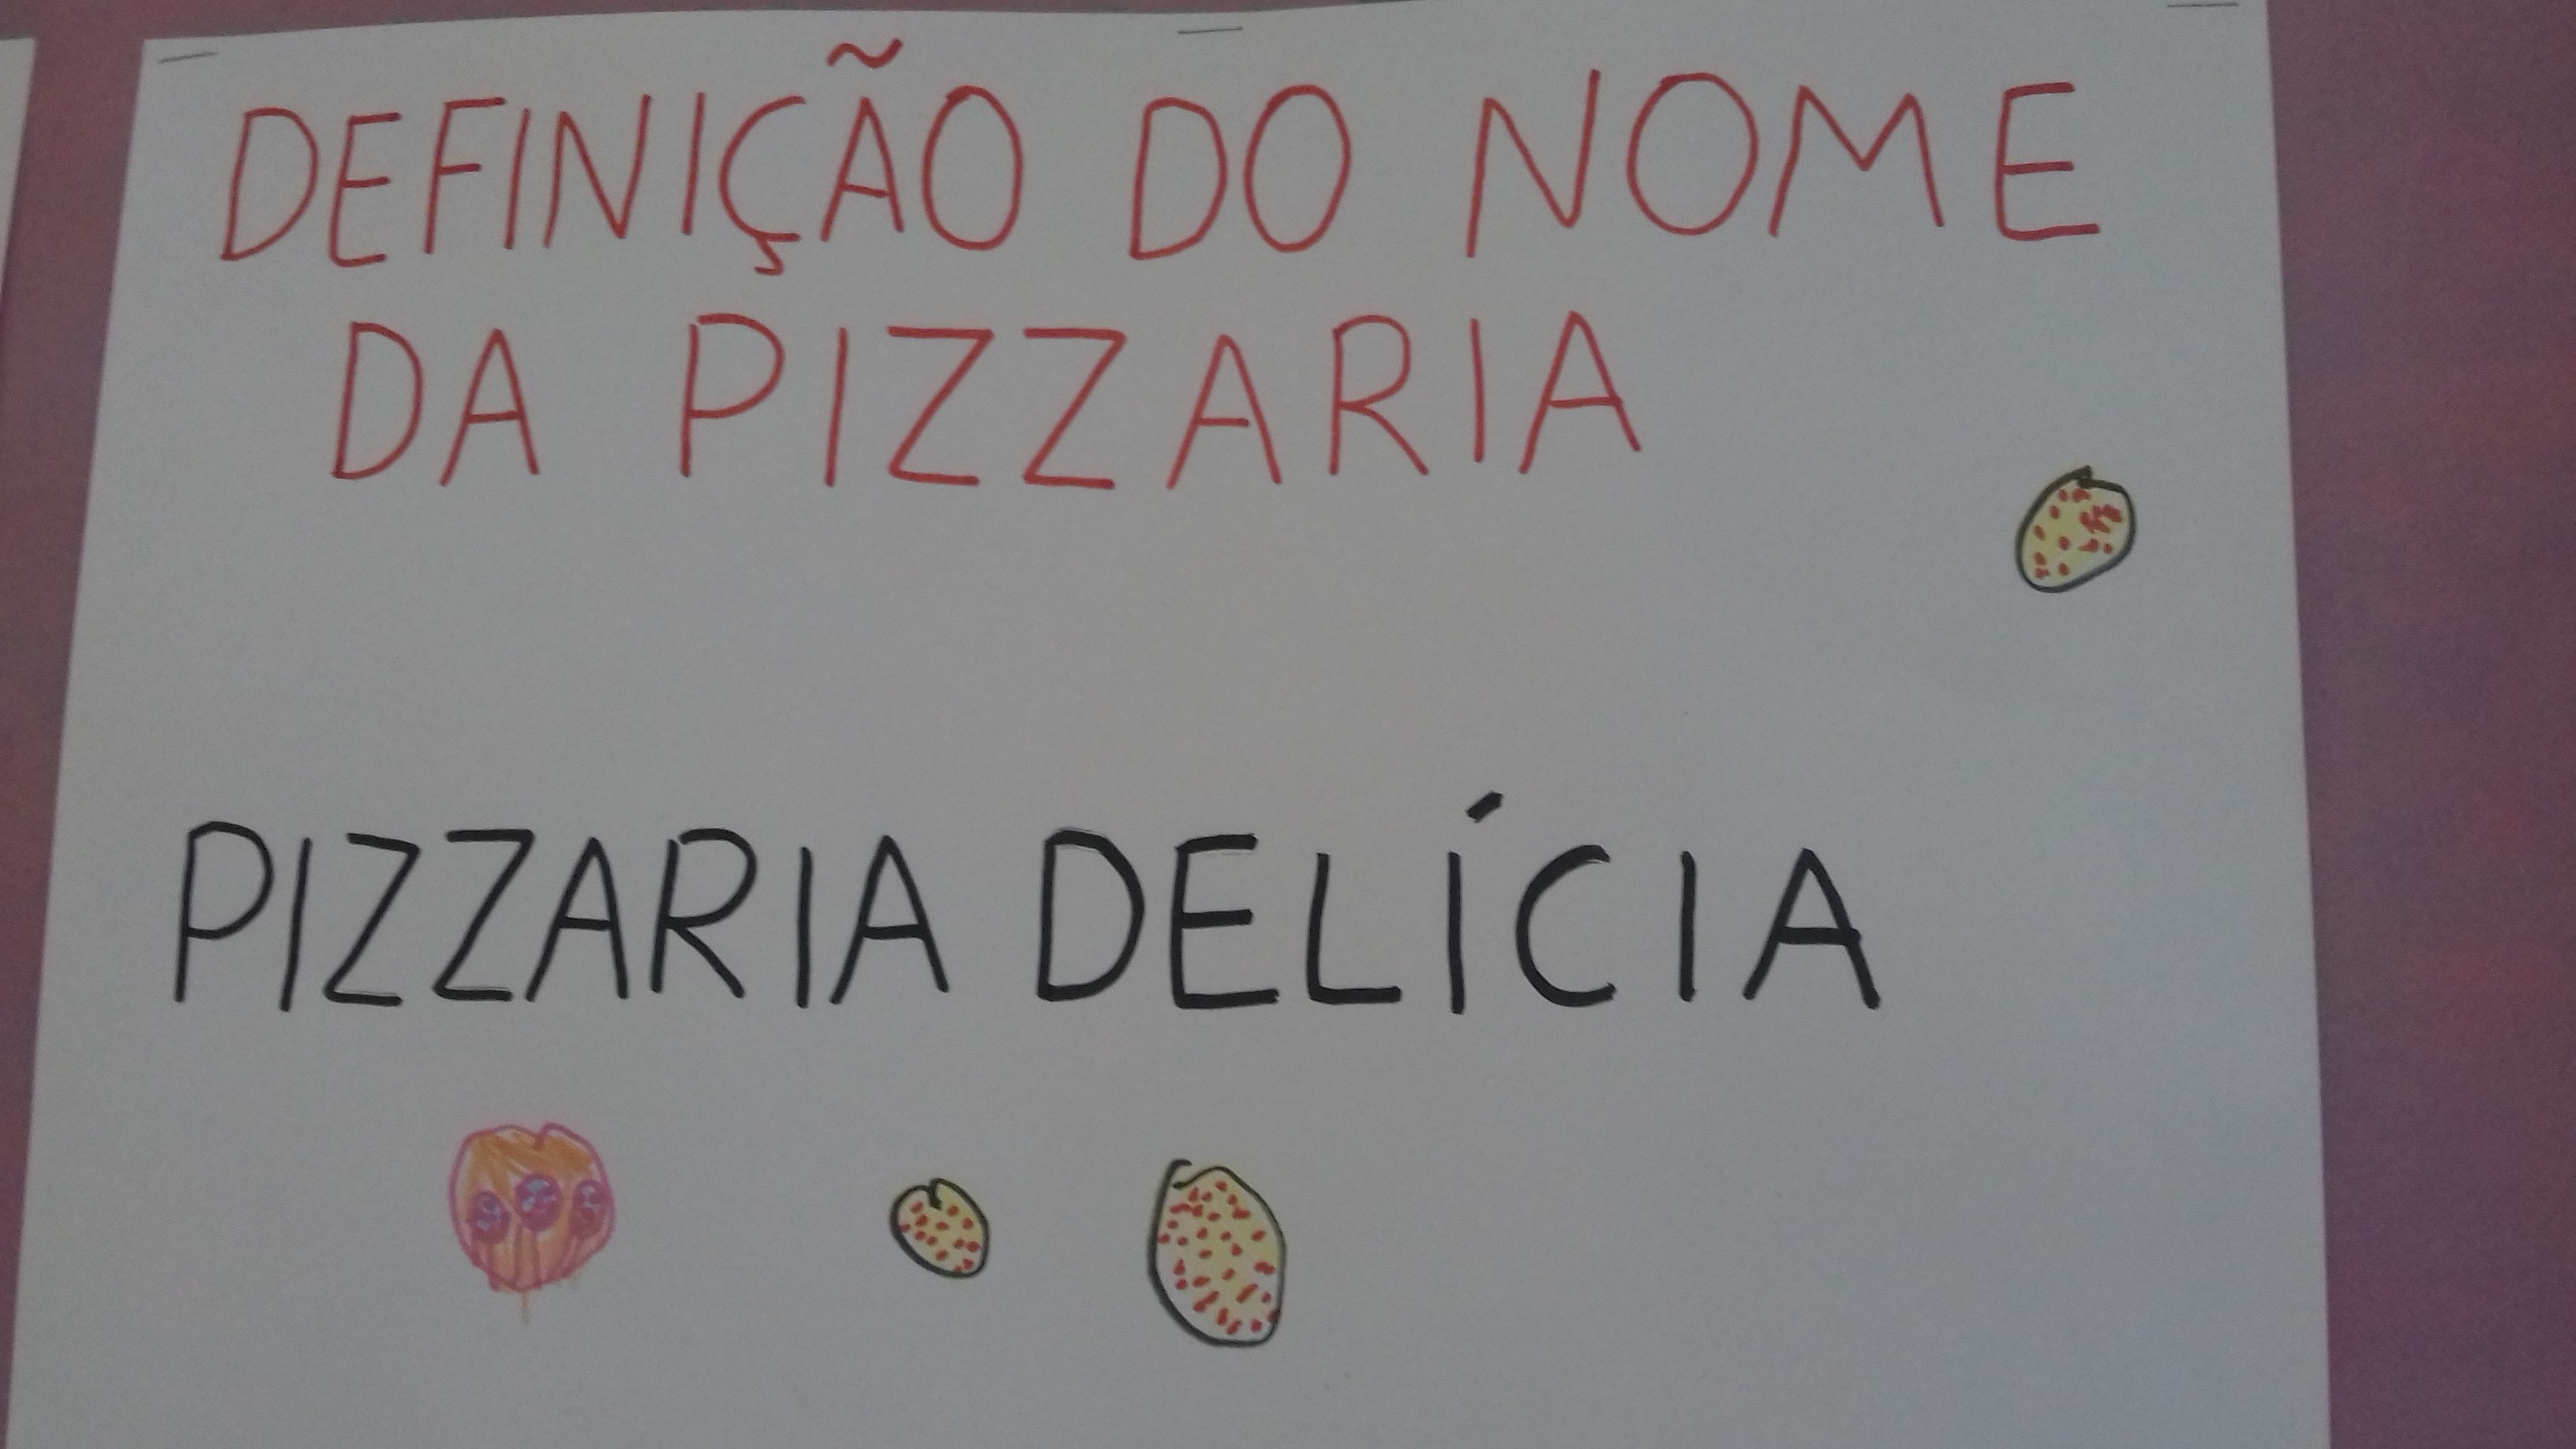 DEFINIÇÃO DO NOME
DA PIZZARIA
PIZZARIA DELÍCIA